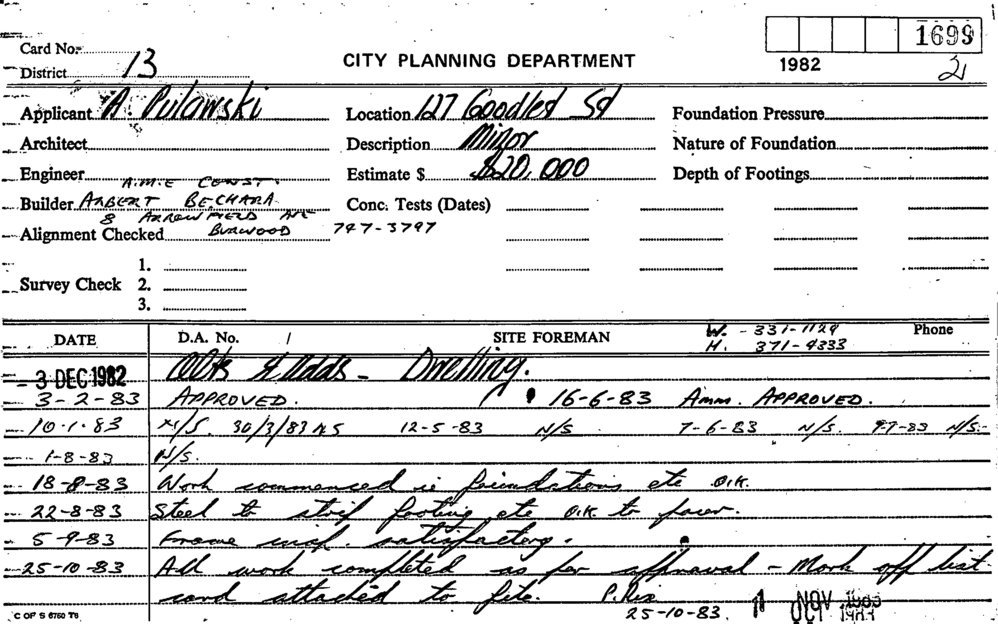 Card No:
1699
District 13
CITY PLANNING DEPARTMENT
1982
2
Applicant A. Pulawski
Location 127 Goodlet St
Foundation Pressure
Architect
Description Minor
Nature of Foundation
Engineer
Estimate $ $20,000
Depth of Footings
A.M.E CONST.
Builder ALBERT BECHARA
Conc. Tests (Dates)
8 ARROWFIELD AVE
Alignment Checked BURWOOD 747-3797
1.
Survey Check 2.
3.
DATE D.A. No. / SITE FOREMAN W. - 331-1129 Phone
H. 371-4333
- 3 DEC 1982 Alts & Adds - Dwelling.
3-2-83 APPROVED. 16-6-83 Amm. APPROVED.
10.1.83 N/S. 30/3/83 NS 12-5-83 N/S 7-6-83 N/S. 9-7-83 N/S.-
1-8-83 N/S.
18-8-83 Work commenced ie foundations etc O.K.
22-8-83 Steel to strip footing etc O.K. to pour.
5-9-83 Frame insp. satisfactory.
25-10-83 All work completed as per approval - Mark off list
card attached to file. P.Rix
25-10-83. 1 NOV 1983
C OF S 6760 T6